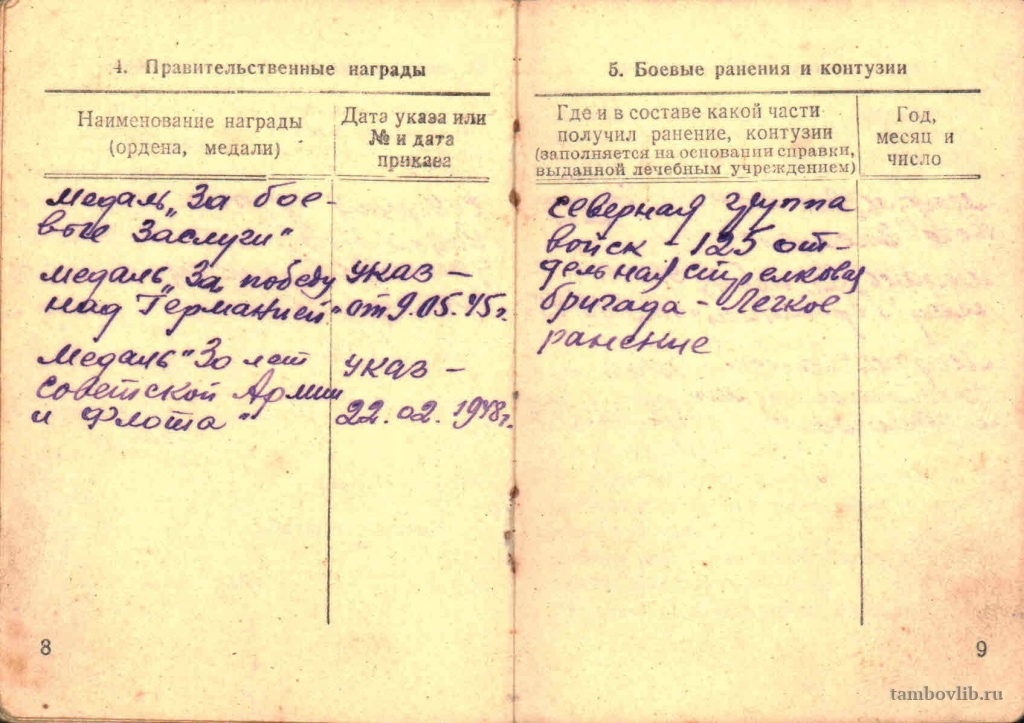 4. Правительственные награды
Наименование награды
(ордена, медали)
Дата указа или
№ и дата
приказа
медаль „За бое-
вые Заслуги"
медаль „За победу
над Германией"
указ –
от 9.05.45г.
медаль "30 лет
советской Армии
и Флота"
указ –
22.02.1948г.
8
5. Боевые ранения и контузии
Где и в составе какой части
получил ранение, контузии
(заполняется на основании справки,
выданной лечебным учреждением)
Год,
месяц и
число
северная группа
войск – 125 от-
дельная стрелковая
бригада – Легкое
ранение
9
tambovlib.ru